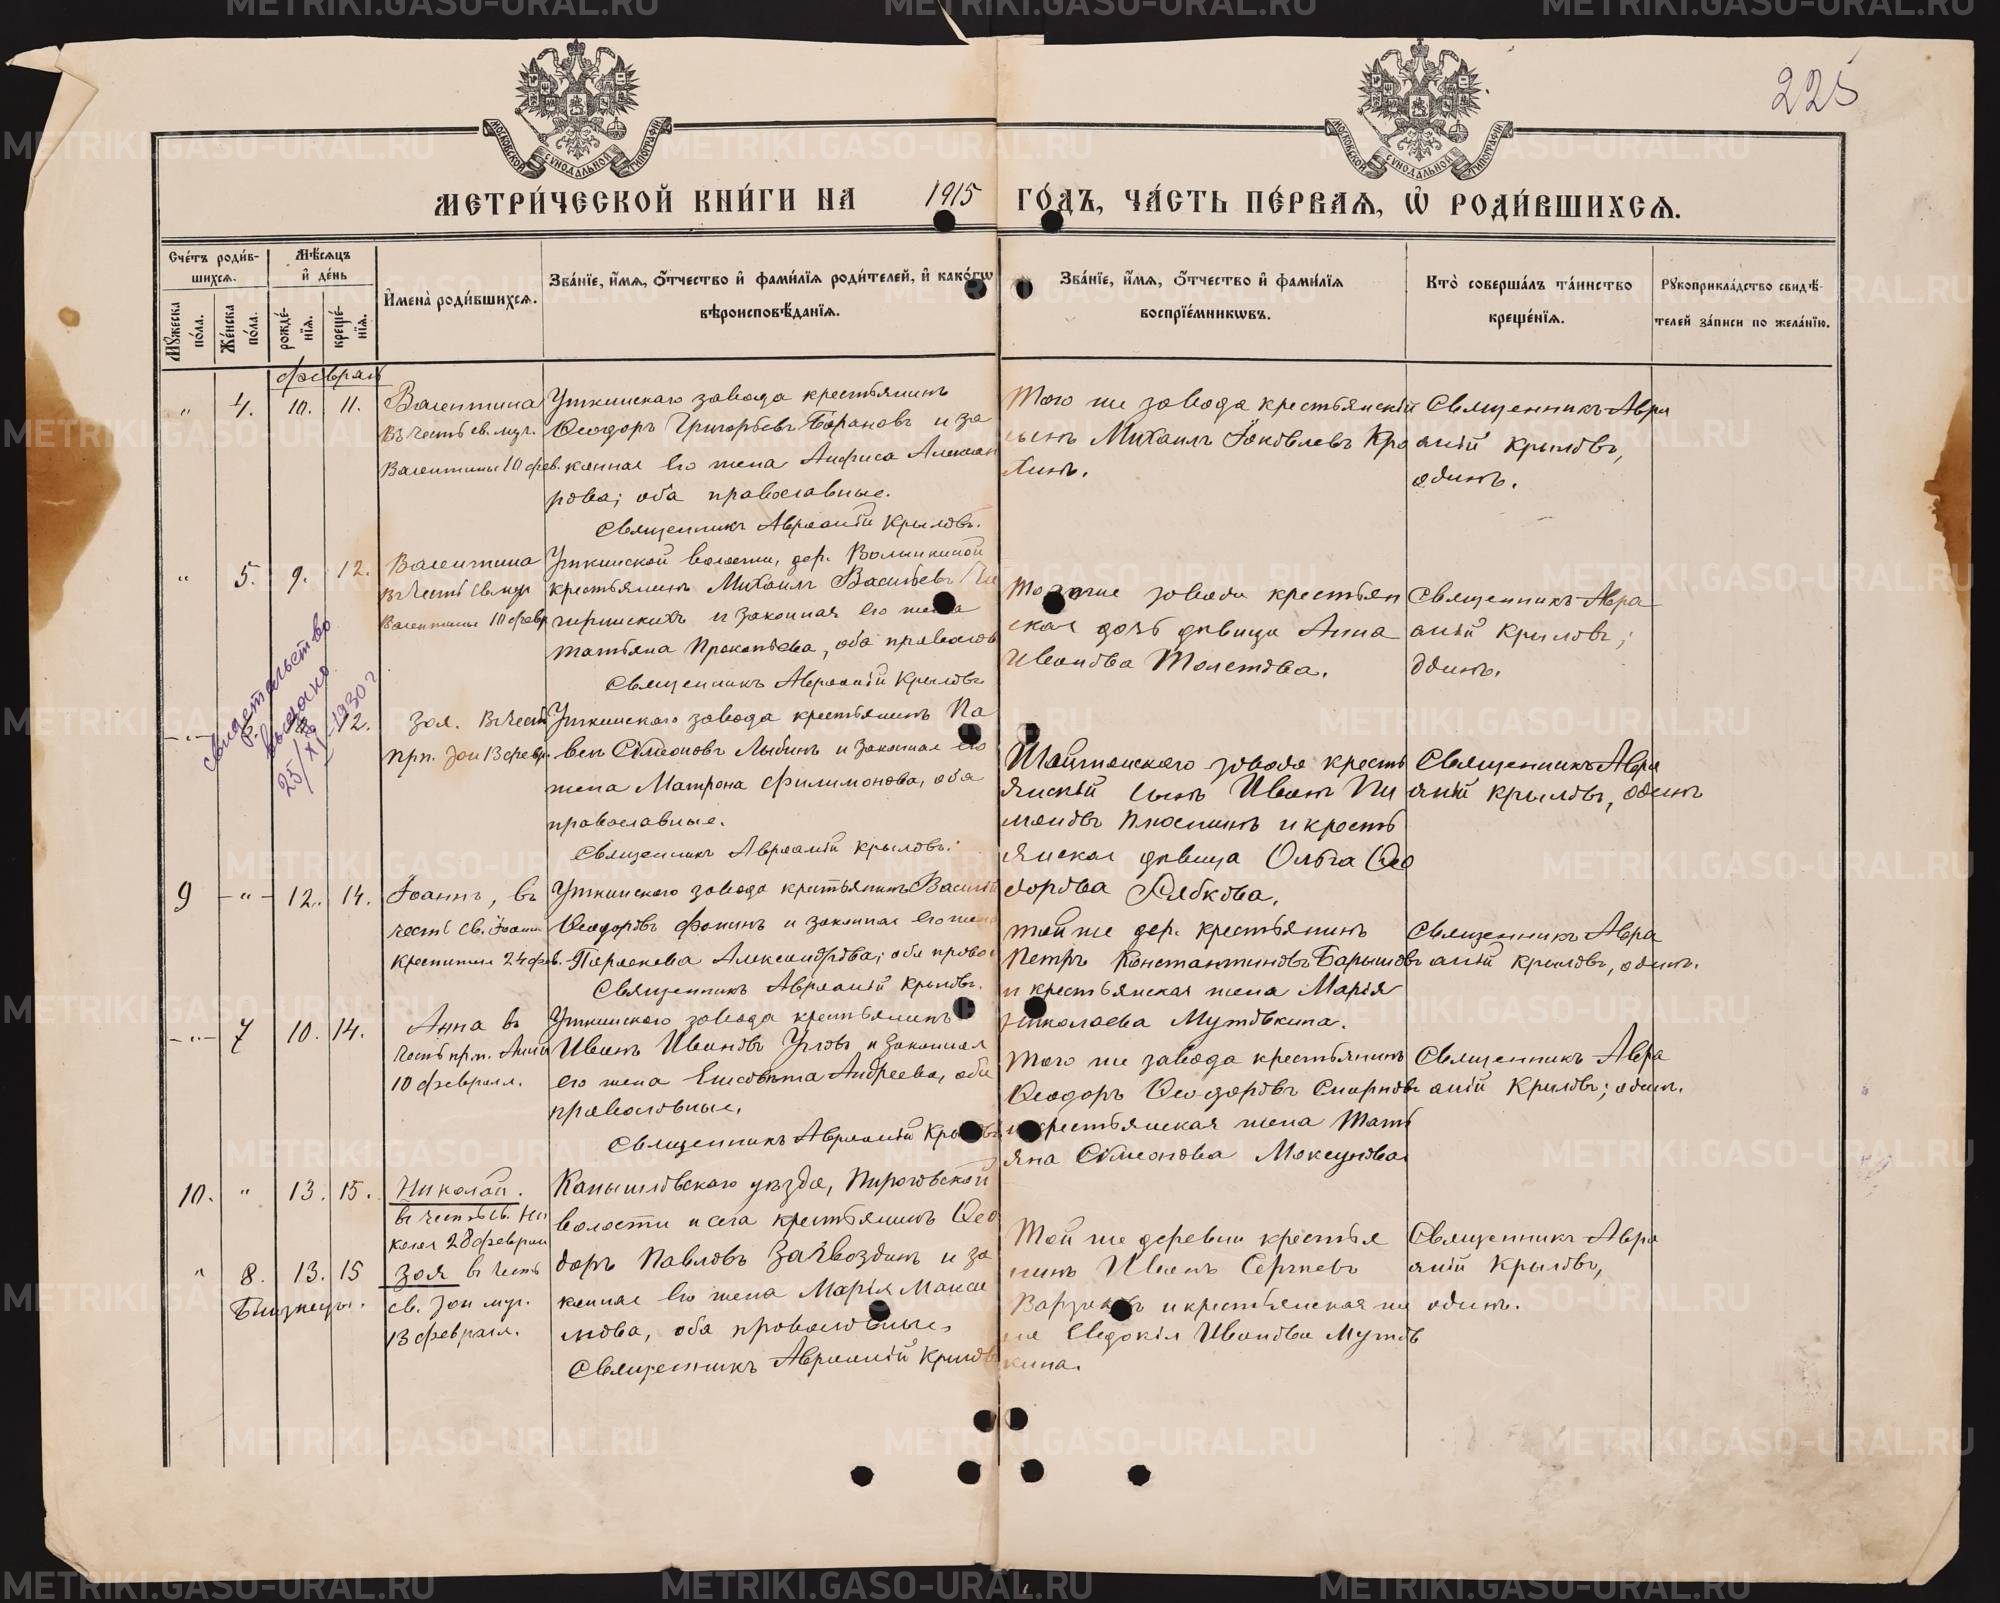 225
МОСКОВСКОЙ СѴНОДАЛЬНОЙ ТИПОГРАФІИ
МОСКОВСКОЙ СѴНОДАЛЬНОЙ ТИПОГРАФІИ
МЕТРИ́ЧЕСКОЙ КНИ́ГИ НА 1915 ГО́ДЪ, ЧА́СТЬ ПЕ́РВАѦ, Ѡ҆ РОДИ́ВШИХСѦ.
Сче́тъ роди́вшихсѧ.
Мꙋ́жеска по́ла.
Же́нска по́ла.
Мѣ́сѧцъ и҆ де́нь
рожде́нїѧ.
креще́нїѧ.
И҆мена̀ роди́вшихсѧ.
Зва́нїе, и҆́мѧ, ѻ҆́тчество и҆ фами́лїѧ роди́телей, и҆ како́гѡ
вѣроисповѣ́данїѧ.
Зва́нїе, и҆́мѧ, ѻ҆́тчество и҆ фами́лїѧ
воспрїе́мникѡвъ.
Кто̀ соверша́лъ та́инство
креще́нїѧ.
Рꙋкоприкла́дство свидѣ́-
телей за́писи по жела́нїю.
февраль
" 4. 10. 11.
Валентина
въ честь св. муч.
Валентины 10 фев.
Уткинскаго завода крестьянинъ
Ѳеодоръ Григорьевъ Барановъ и за
конная его жена Анфиса Алексан
рова; оба православные.
Священникъ Авраамій Крыловъ.
Того же завода крестьянскій
сынъ Михаилъ Іаковлевъ Кро
хинъ.
Священникъ Авра
амій Крыловъ,
одинъ.
" 5. 9. 12.
Валентина
въ честь св. муч
Валентины 10 февр
Уткинской волости, дер.
крестьянинъ Михаилъ Васильевъ
и законная его жена
Татьяна Прокопьева, оба правосл
Священникъ Авраамій Крыловъ
Того же завода крестьян
ская дочь дѣвица Анна
Иванова Толстова.
Священникъ Авра
амій Крыловъ;
одинъ.
свидетельство
выслано
25/XI-1930 г.
-"- 12.
Зоя. въ честь
прп. Зои 13 февр.
Уткинскаго завода крестьянинъ Па
велъ Сѵмеоновъ Лыбинъ и законная его
жена Матрона Филимонова, оба
православные.
Священникъ Авраамій Крыловъ.
Шайтанскаго завода кресть
янскій сынъ Иванъ Пи
меновъ Плюснинъ и кресть
янская дѣвица Ольга Ѳео
дорова Рябкова.
Священникъ Авра
амій Крыловъ, одинъ
9 -"- 12. 14.
Іоаннъ, въ
честь св. Іоанн
Крестителя 24 фев.
Уткинскаго завода крестьянинъ Василій
Ѳеодоровъ Фокинъ и законная его жена
Параскева Александрова; оба правос
Священникъ Авраамій Крыловъ.
той же дер. крестьянинъ
Петръ Константиновъ Барышовъ
и крестьянская жена Марія
Николаева Мутовкина.
Священникъ Авра
амій Крыловъ, одинъ.
-"- 7 10. 14.
Анна въ
честь прп. Анны
10 февраля.
Уткинскаго завода крестьянинъ
Иванъ Ивановъ Угловъ и законная
его жена Елисавета Андреева, оба
православные.
Священникъ Авраамій Крыловъ
Того же завода крестьянинъ
Ѳеодоръ Ѳеодоровъ Смирновъ
и крестьянская жена Тать
яна Сѵмеонова Моксунова
Священникъ Авра
амій Крыловъ; одинъ.
10. " 13. 15.
Николай.
въ честь св. Ни
колая 28 февраля
" 8. 13. 15
Близнецы.
Зоя въ честь
св. Зои муч.
13 февраля.
Камышловскаго уѣзда, Пироговской
волости и села крестьянинъ Ѳео
доръ Павловъ Загвоздинъ и за
конная его жена Марія Макси
мова, оба православные.
Священникъ Авраамій Крыловъ
Той же деревни крестья
нинъ Иванъ Сергѣевъ
и крестьянская же
на Евдокія Иванова Мутов
кина.
Священникъ Авра
амій Крыловъ,
одинъ.
METRIKI.GASO-URAL.RU